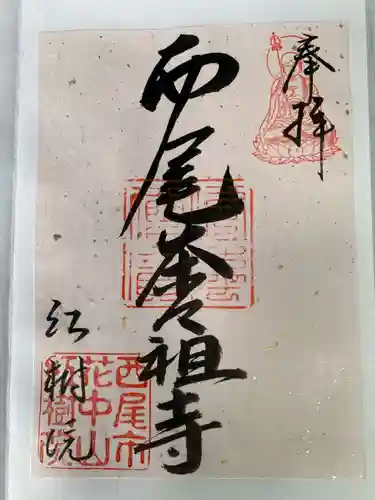 奉拝
西尾茶祖寺
紅樹院
西尾市
花中山
紅樹院